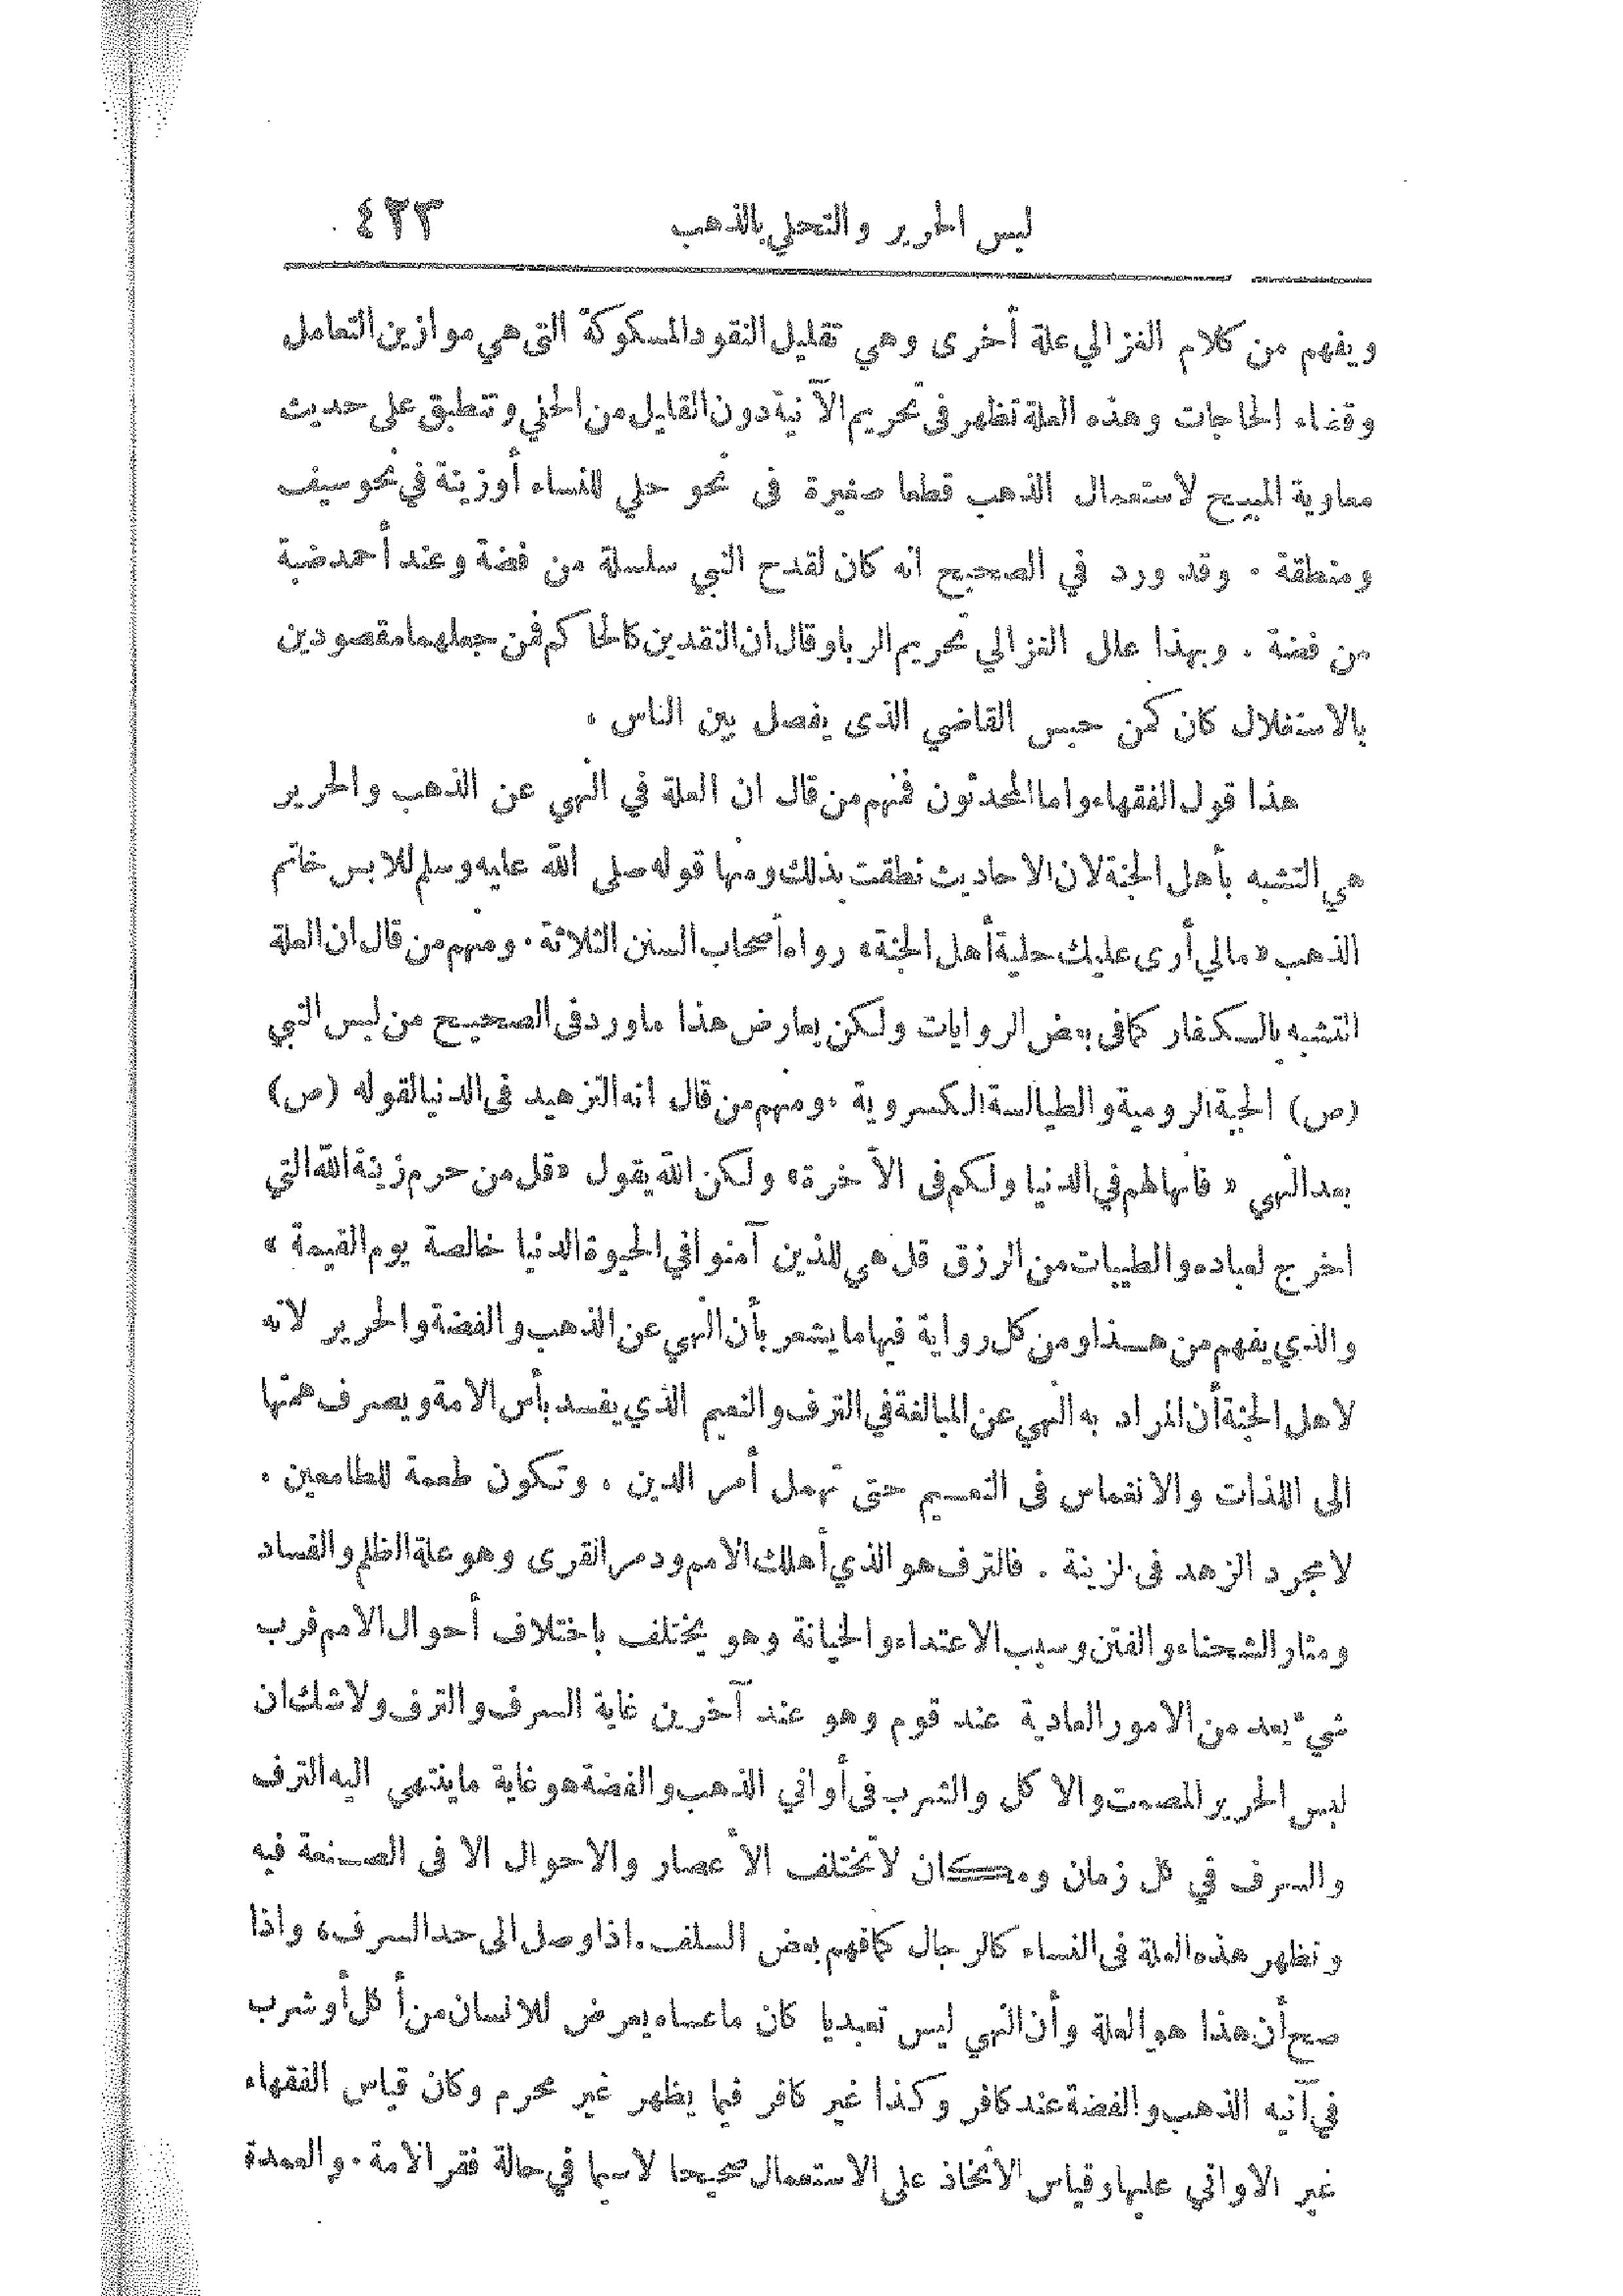 لبس الحرير والتحلي بالذهب ٤٢٣
ويفهم من كلام الغزالي علة أخرى وهي تقليل النقود المسكوكة التى هي موازين التعامل
وقضاء الحاجات وهذه العلة تظهر فى تحريم الآنية دون القليل من الحلي وتنطبق على حديث
معاوية المبيح لاستعمال الذهب قطعا صغيرة فى نحو حلي للنساء أو زينة في نحو سيف
ومنطقة . وقد ورد في الصحيح انه كان لقدح النبي سلسلة من فضة وعند أحمد ضبة
من فضة . وبهذا علل الغزالي تحريم الربا وقال ان النقدين كالحاكم فمن جعلهما مقصودين
بالاستغلال كان كمن حبس القاضي الذى يفصل بين الناس .
هذا قول الفقهاء واما المحدثون فمنهم من قال ان العلة في النهي عن الذهب والحرير
هي التشبه بأهل الجنة لان الاحاديث نطقت بذلك ومنها قوله صلى الله عليه وسلم للابس خاتم
الذهب « مالي أرى عليك حلية أهل الجنة » رواه أصحاب السنن الثلاثة . ومنهم من قال ان العلة
التشبه بالكفار كما فى بعض الروايات ولكن يعارض هذا ما ورد فى الصحيح من لبس النبي
(ص) الجبة الرومية والطيالسة الكسروية . ومنهم من قال انه التزهيد فى الدنيا لقوله (ص)
بعد النهي « فانها لهم في الدنيا ولكم فى الآخرة » ولكن الله يقول « قل من حرم زينة الله التي
اخرج لعباده والطيبات من الرزق قل هي للذين آمنوا في الحيوة الدنيا خالصة يوم القيمة »
والذي يفهم من هذا ومن كل رواية فيها ما يشعر بأن النهي عن الذهب والفضة والحرير لانه
لاهل الجنة أن المراد به النهي عن المبالغة في الترف والنعيم الذي يفسد بأس الامة ويصرف همتها
الى اللذات والانغماس فى النعيم حتى تهمل أمر الدين ، وتكون طعمة للطامعين .
لا مجرد الزهد فى لزينة . فالترف هو الذي أهلك الامم ودمر القرى وهو علة الظلم والفساد
ومثار الشحناء والفتن وسبب الاعتداء والخيانة وهو يختلف باختلاف أحوال الامم فرب
شيء يعد من الامور العادية عند قوم وهو عند آخرين غاية السرف والترف ولا شك ان
لبس الحرير المصمت والاكل والشرب فى أواني الذهب والفضة هو غاية ما ينتهي اليه الترف
والسرف في كل زمان ومكان لا تختلف الأعصار والاحوال الا فى الصنعة فيه
وتظهر هذه العلة فى النساء كالرجال كما فهم بعض السلف . اذا وصل الى حد السرف ، واذا
صح أن هذا هو العلة وأن النهي ليس تعبديا كان ما عساه يعرض للانسان من أكل أو شرب
في آنيه الذهب والفضة عند كافر وكذا غير كافر فيما يظهر غير محرم وكان قياس الفقهاء
غير الاواني عليها وقياس الاتخاذ على الاستعمال صحيحا لا سيما في حالة فقر الامة . والعمدة